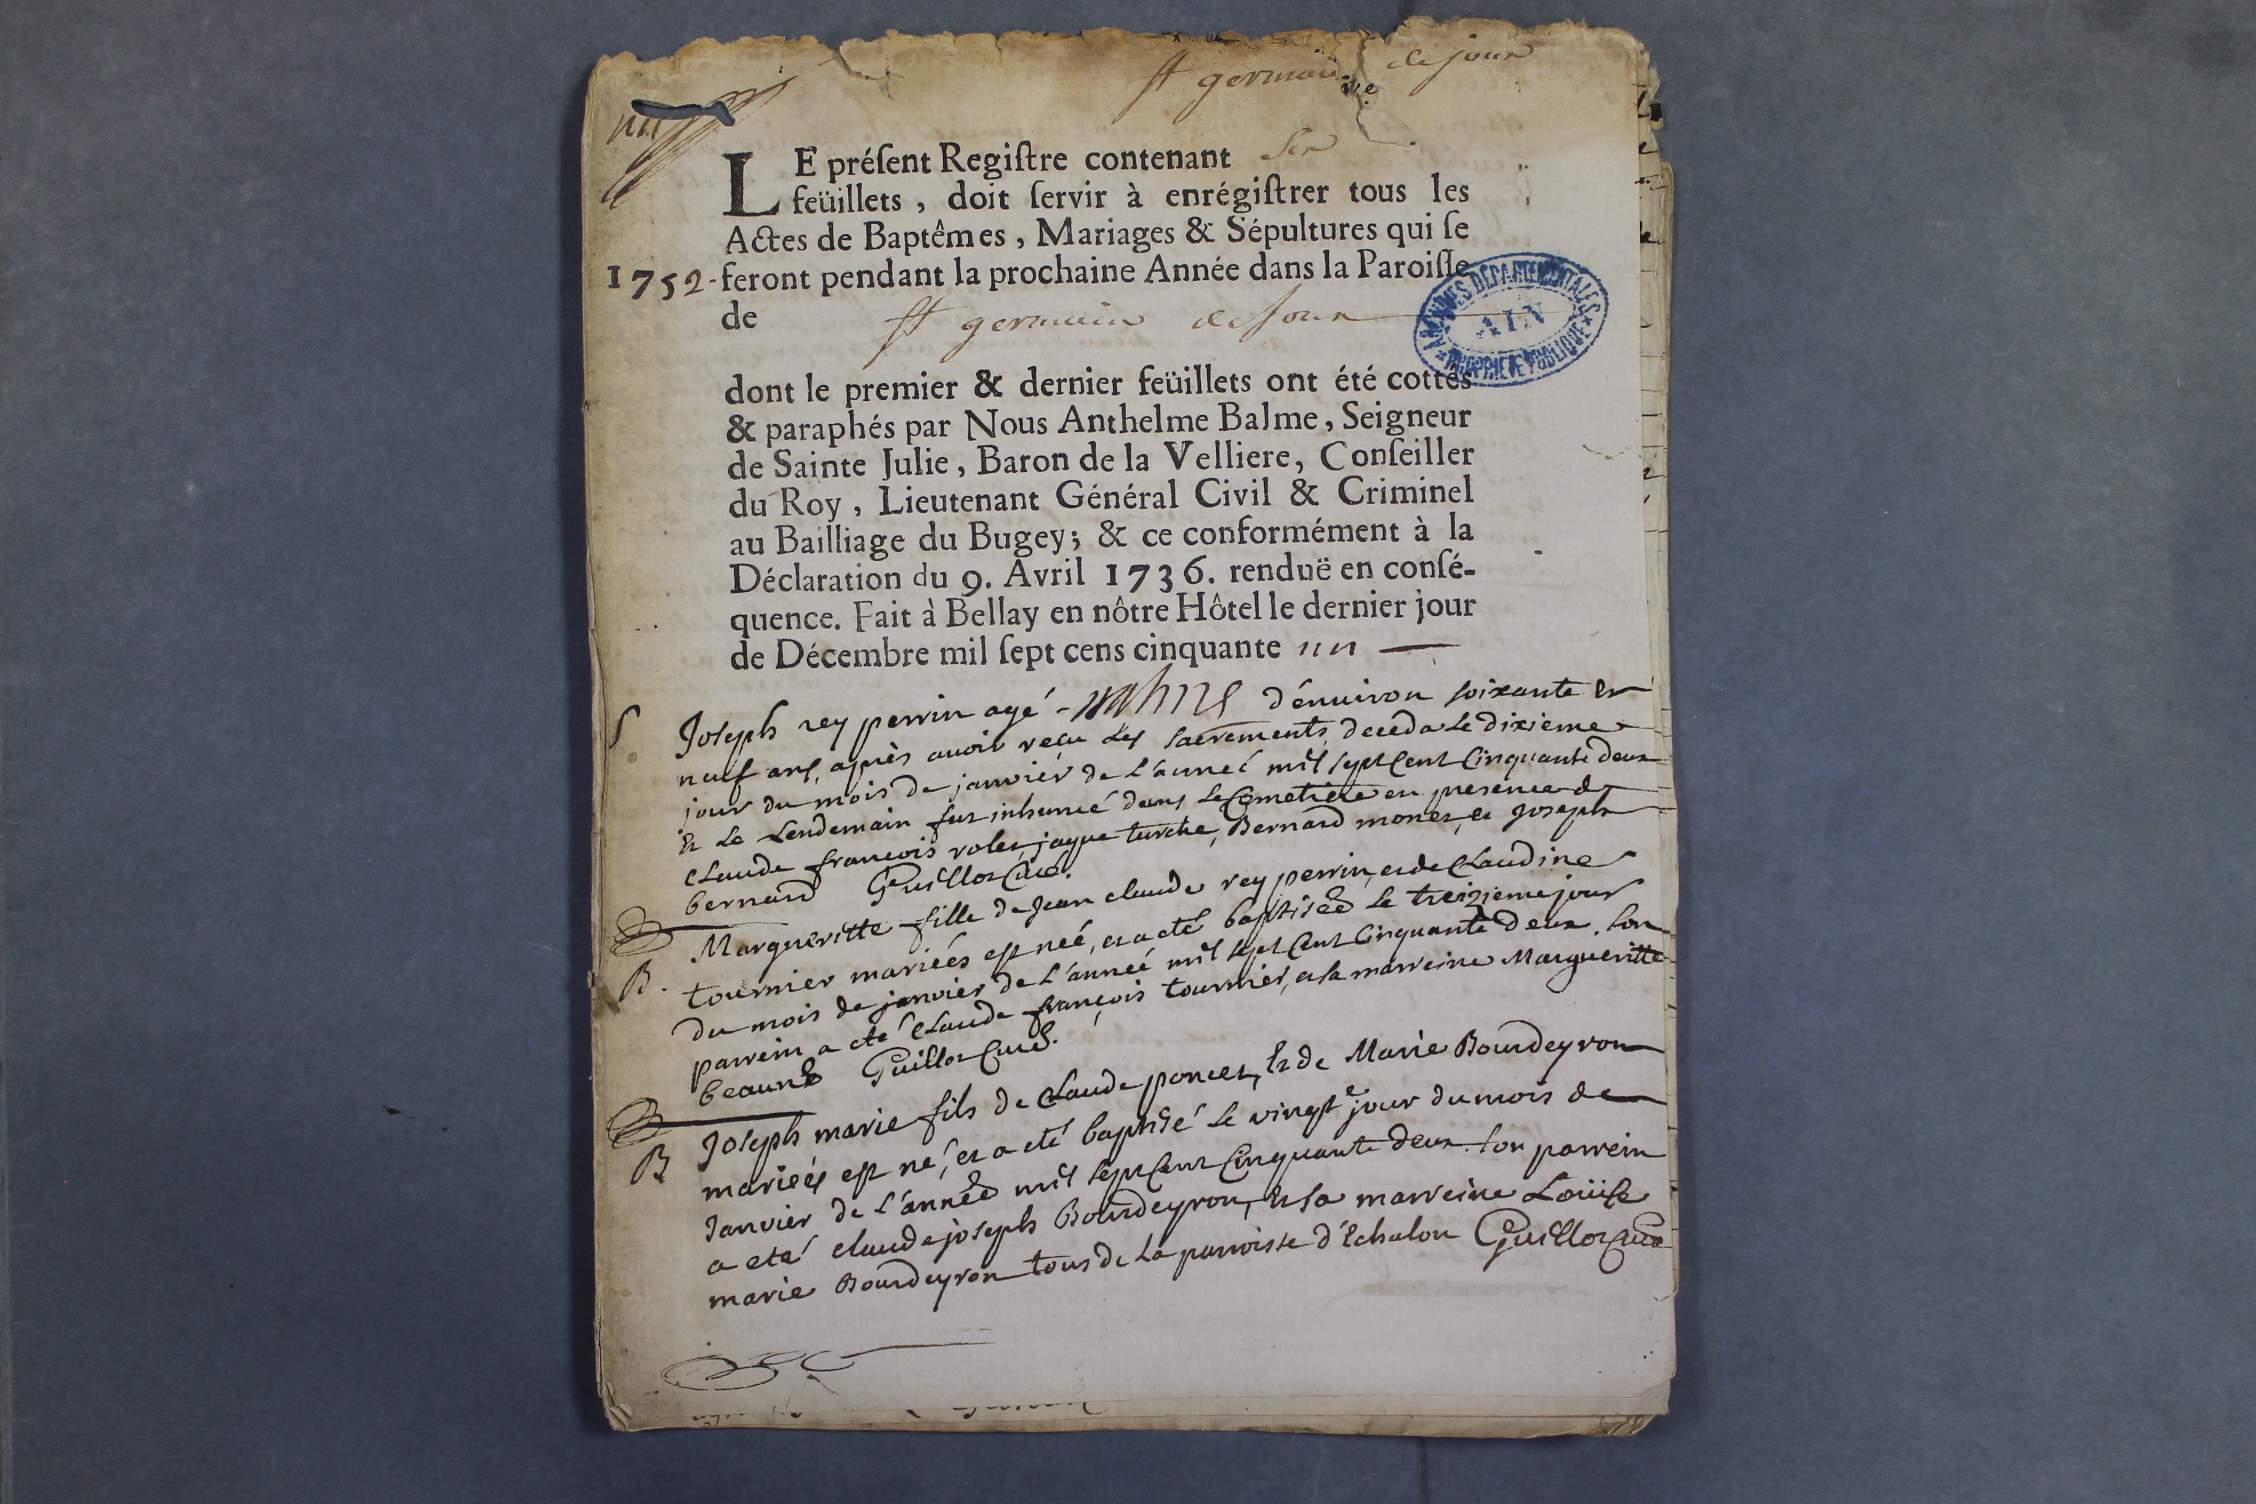 st germain de joux
LE préſent Regiſtre contenant
feüillets, doit ſervir à enrégiſtrer tous les
Actes de Baptêmes, Mariages & Sépultures qui ſe
1752 - feront pendant la prochaine Année dans la Paroiſſe
de st germain de Joux
ARCHIVES DÉPARTEMENTALES
AIN
PROPRIÉTÉ PUBLIQUE
dont le premier & dernier feüillets ont été cottés
& paraphés par Nous Anthelme Balme, Seigneur
de Sainte Julie, Baron de la Velliere, Conſeiller
du Roy, Lieutenant Général Civil & Criminel
au Bailliage du Bugey; & ce conformément à la
Déclaration du 9. Avril 1736. renduë en conſé-
quence. Fait à Bellay en nôtre Hôtel le dernier jour
de Décembre mil ſept cens cinquante un
S Joseph rey perrin agé d'énuiron soixante et
neuf ans, après auoir reçu les sacrements, deceda le dixieme
jour du mois de janvier de l'anneé mil sept Cent Cinquante deux
et le Lendemain fut inhumé dans le Cemetiere en presence de
claude françois rolet, jaque turche, Bernard monet, et joseph
bernard Guillot Curé.
B. Margueritte fille de Jean claude rey perrin, et de Claudine
tournier mariéés est neé, et a eté baptiseé le treizieme jour
du mois de janvier de l'anneé mil sept Cent Cinquante deux. son
parrein a eté claude françois tournier, et sa marreine Margueritte
beaune Guillot Curé.
B Joseph marie fils de claude poncet, et de Marie Bourdeyron
mariéés est né, et a eté baptisé le vingt.e jour du mois de
Janvier de l'anneé mil sept Cent Cinquante deux. son parrein
a eté claude joseph Bourdeyron, et sa marreine Loüise
marie Bourdeyron tous de la parroisse d'Echalon Guillot Curé